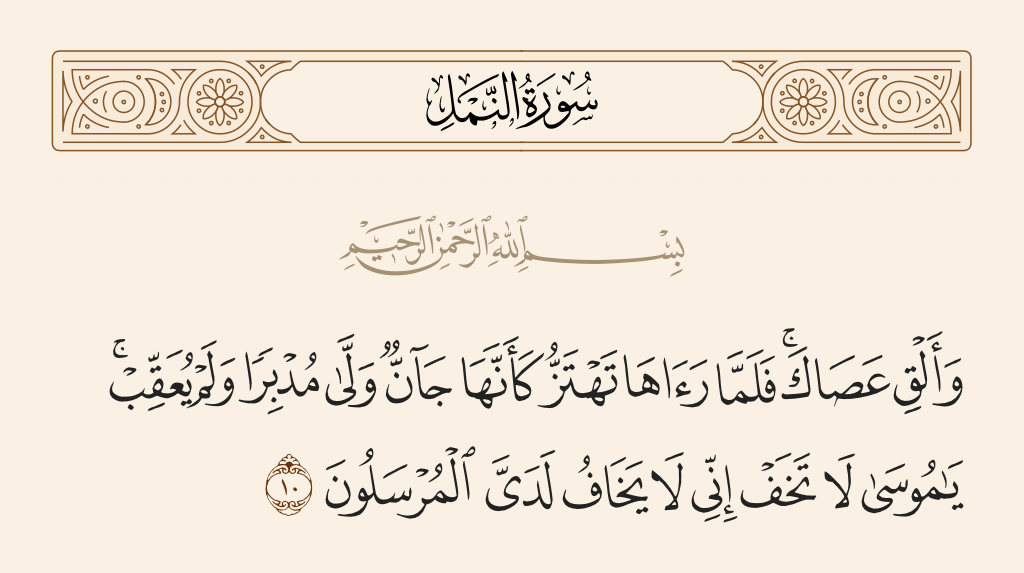 سُورَةُ النَّمْلِ
بِسْمِ ٱللَّهِ ٱلرَّحْمَٰنِ ٱلرَّحِيمِ
وَأَلْقِ عَصَاكَ ۚ فَلَمَّا رَءَاهَا تَهْتَزُّ كَأَنَّهَا جَآنٌّ وَلَّىٰ مُدْبِرًا وَلَمْ يُعَقِّبْ ۚ
يَـٰمُوسَىٰ لَا تَخَفْ إِنِّى لَا يَخَافُ لَدَىَّ ٱلْمُرْسَلُونَ ١٠